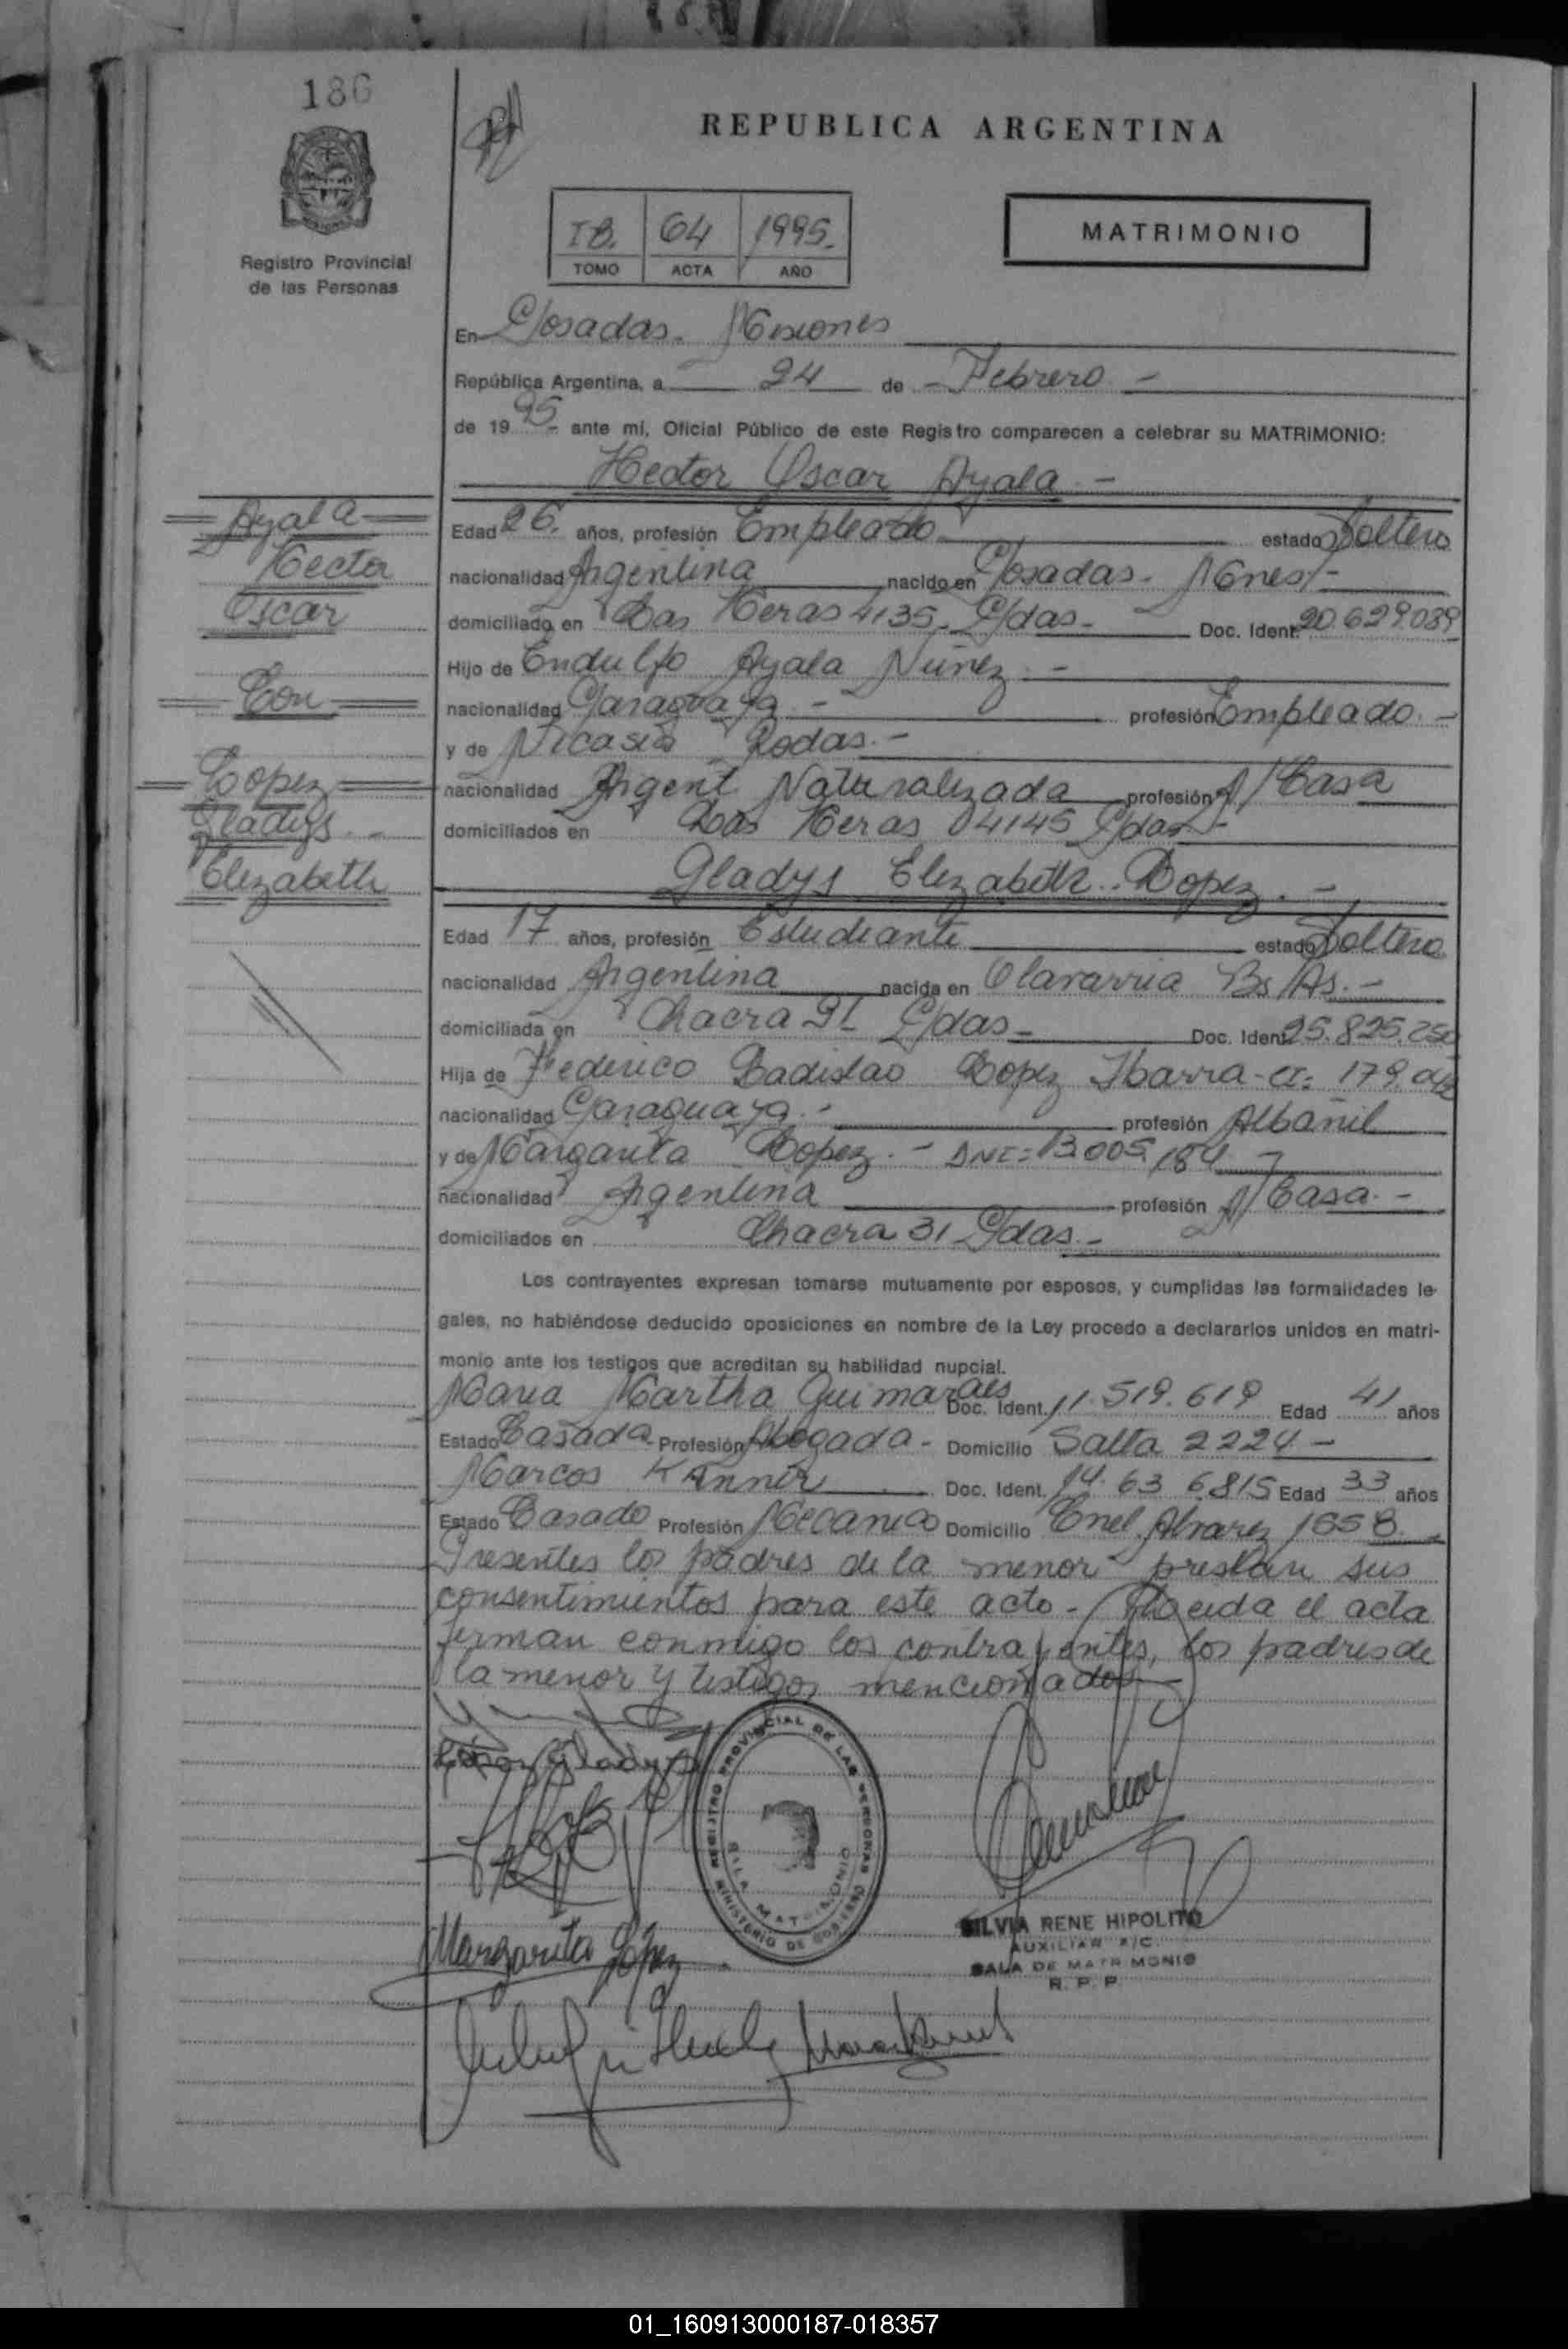 186
REPUBLICA ARGENTINA
TB. 64 1995.
TOMO ACTA AÑO
MATRIMONIO
Registro Provincial
de las Personas
En Posadas. Misiones
República Argentina, a 24 de - Febrero -
de 1995 - ante mí, Oficial Público de este Registro comparecen a celebrar su MATRIMONIO:
Hector Oscar Ayala -
Ayala
Hector
Oscar
Con
Lopez
Gladys -
Elizabeth
Edad 26. años, profesión Empleado estado Soltero
nacionalidad Argentina nacido en Posadas. Mnes -
domiciliado en Las Heras 4135. Pdas - Doc. Ident. 20.629.089
Hijo de Endulfo Ayala Núñez -
nacionalidad Paraguaya - profesión Empleado. -
y de Nicasia Rodas. -
nacionalidad Argent. Naturalizada profesión A/Casa
domiciliados en Las Heras 04145 Pdas -
Gladys Elizabeth Lopez. -
Edad 17 años, profesión Estudiante estado Soltera
nacionalidad Argentina nacida en Olavarria Bs/As. -
domiciliada en Chacra 31 Pdas - Doc. Ident. 25.825.
Hija de Federico Ladislao Lopez Ibarra - CI: 179.
nacionalidad Paraguaya - profesión Albañil
y de Margarita Lopez. - DNI: 13.005.184 -
nacionalidad Argentina profesión A/Casa. -
domiciliados en Chacra 31 Pdas. -
Los contrayentes expresan tomarse mutuamente por esposos, y cumplidas las formalidades le-
gales, no habiéndose deducido oposiciones en nombre de la Ley procedo a declararlos unidos en matri-
monio ante los testigos que acreditan su habilidad nupcial.
Maria Martha Guimaraes Doc. Ident. 11.519.619 Edad 41 años
Estado Casada - Profesión Abogada - Domicilio Salta 2224 -
Marcos Kanner Doc. Ident. 14.636815 Edad 33 años
Estado Casado Profesión Mecanico Domicilio Cnel Alvarez 1658.
Presentes los padres de la menor prestan sus
consentimientos para este acto - Leida el acta
firman conmigo los contrayentes, los padres de
la menor y testigos mencionados
López Gladys
REGISTRO PROVINCIAL DE LAS PERSONAS
SALA MATRIMONIO
MINISTERIO DE GOBIERNO
SILVIA RENE HIPOLITO
AUXILIAR A/C
SALA DE MATRIMONIO
R. P. P.
Margarita López
01_160913000187-018357